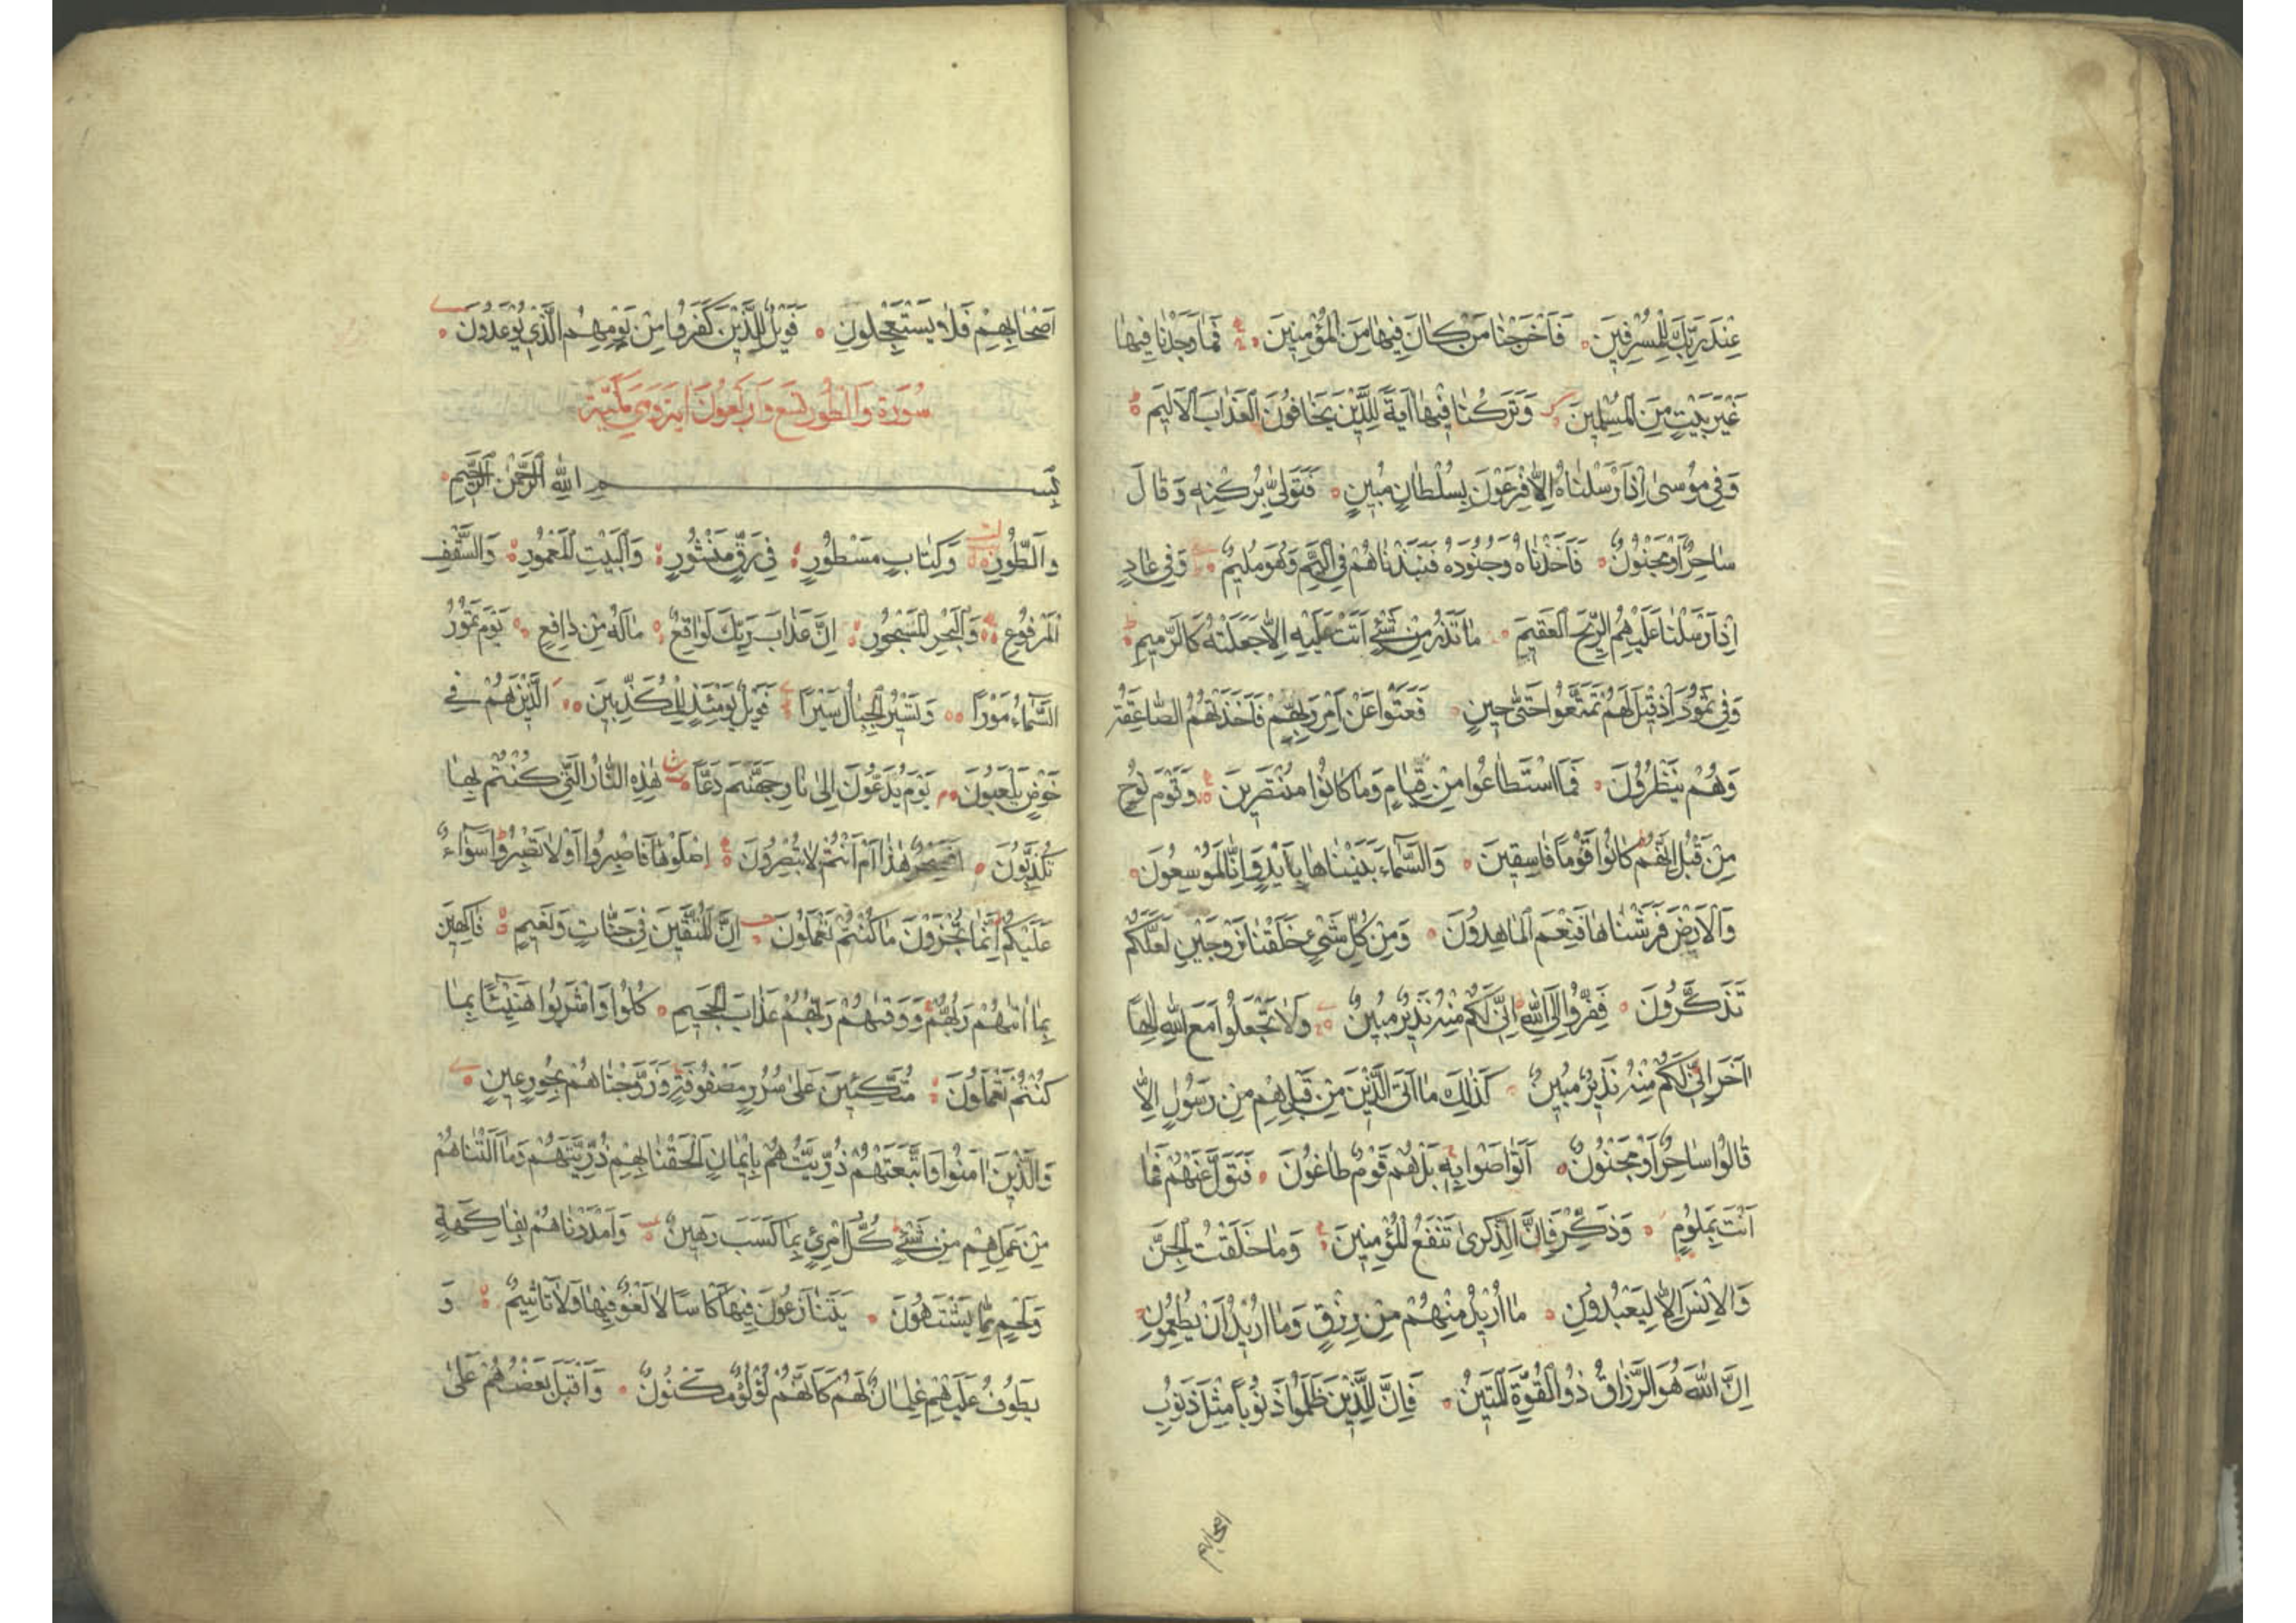 عِنْدَ رَبِّكَ لِلْمُسْرِفِينَ فَاَخْرَجْنَا مَنْ كَانَ فِيهَا مِنَ الْمُؤْمِنِينَ فَمَا وَجَدْنَا فِيهَا
غَيْرَ بَيْتٍ مِنَ الْمُسْلِمِينَ وَتَرَكْنَا فِيهَا اٰيَةً لِلَّذِينَ يَخَافُونَ الْعَذَابَ الْاَلِيمَ
وَفِي مُوسٰى اِذْ اَرْسَلْنَاهُ اِلٰى فِرْعَوْنَ بِسُلْطَانٍ مُبِينٍ فَتَوَلّٰى بِرُكْنِهِ وَقَالَ
سَاحِرٌ اَوْ مَجْنُونٌ فَاَخَذْنَاهُ وَجُنُودَهُ فَنَبَذْنَاهُمْ فِي الْيَمِّ وَهُوَ مُلِيمٌ وَفِي عَادٍ
اِذْ اَرْسَلْنَا عَلَيْهِمُ الرِّيحَ الْعَقِيمَ مَا تَذَرُ مِنْ شَيْءٍ اَتَتْ عَلَيْهِ اِلَّا جَعَلَتْهُ كَالرَّمِيمِ
وَفِي ثَمُودَ اِذْ قِيلَ لَهُمْ تَمَتَّعُوا حَتّٰى حِينٍ فَعَتَوْا عَنْ اَمْرِ رَبِّهِمْ فَاَخَذَتْهُمُ الصَّاعِقَةُ
وَهُمْ يَنْظُرُونَ فَمَا اسْتَطَاعُوا مِنْ قِيَامٍ وَمَا كَانُوا مُنْتَصِرِينَ وَقَوْمَ نُوحٍ
مِنْ قَبْلُ اِنَّهُمْ كَانُوا قَوْمًا فَاسِقِينَ وَالسَّمَاءَ بَنَيْنَاهَا بِاَيْدٍ وَاِنَّا لَمُوسِعُونَ
وَالْاَرْضَ فَرَشْنَاهَا فَنِعْمَ الْمَاهِدُونَ وَمِنْ كُلِّ شَيْءٍ خَلَقْنَا زَوْجَيْنِ لَعَلَّكُمْ
تَذَكَّرُونَ فَفِرُّوا اِلَى اللّٰهِ اِنِّي لَكُمْ مِنْهُ نَذِيرٌ مُبِينٌ وَلَا تَجْعَلُوا مَعَ اللّٰهِ اِلٰهًا
اٰخَرَ اِنِّي لَكُمْ مِنْهُ نَذِيرٌ مُبِينٌ كَذٰلِكَ مَا اَتَى الَّذِينَ مِنْ قَبْلِهِمْ مِنْ رَسُولٍ اِلَّا
قَالُوا سَاحِرٌ اَوْ مَجْنُونٌ اَتَوَاصَوْا بِهِ بَلْ هُمْ قَوْمٌ طَاغُونَ فَتَوَلَّ عَنْهُمْ فَمَا
اَنْتَ بِمَلُومٍ وَذَكِّرْ فَاِنَّ الذِّكْرٰى تَنْفَعُ الْمُؤْمِنِينَ وَمَا خَلَقْتُ الْجِنَّ
وَالْاِنْسَ اِلَّا لِيَعْبُدُونِ مَا اُرِيدُ مِنْهُمْ مِنْ رِزْقٍ وَمَا اُرِيدُ اَنْ يُطْعِمُونِ
اِنَّ اللّٰهَ هُوَ الرَّزَّاقُ ذُو الْقُوَّةِ الْمَتِينُ فَاِنَّ لِلَّذِينَ ظَلَمُوا ذَنُوبًا مِثْلَ ذَنُوبِ
اصحابهم
اَصْحَابِهِمْ فَلَا يَسْتَعْجِلُونِ فَوَيْلٌ لِلَّذِينَ كَفَرُوا مِنْ يَوْمِهِمُ الَّذِي يُوعَدُونَ
سُورَةُ وَالطُّورِ تِسْعٌ وَاَرْبَعُونَ اٰيَةً وَهِيَ مَكِّيَّةٌ
بِسْمِ اللّٰهِ الرَّحْمٰنِ الرَّحِيمِ
وَالطُّورِ وَكِتَابٍ مَسْطُورٍ فِي رَقٍّ مَنْشُورٍ وَالْبَيْتِ الْمَعْمُورِ وَالسَّقْفِ
الْمَرْفُوعِ وَالْبَحْرِ الْمَسْجُورِ اِنَّ عَذَابَ رَبِّكَ لَوَاقِعٌ مَا لَهُ مِنْ دَافِعٍ يَوْمَ تَمُورُ
السَّمَاءُ مَوْرًا وَتَسِيرُ الْجِبَالُ سَيْرًا فَوَيْلٌ يَوْمَئِذٍ لِلْمُكَذِّبِينَ الَّذِينَ هُمْ فِي
خَوْضٍ يَلْعَبُونَ يَوْمَ يُدَعُّونَ اِلٰى نَارِ جَهَنَّمَ دَعًّا هٰذِهِ النَّارُ الَّتِي كُنْتُمْ بِهَا
تُكَذِّبُونَ اَفَسِحْرٌ هٰذَا اَمْ اَنْتُمْ لَا تُبْصِرُونَ اِصْلَوْهَا فَاصْبِرُوا اَوْ لَا تَصْبِرُوا سَوَاءٌ
عَلَيْكُمْ اِنَّمَا تُجْزَوْنَ مَا كُنْتُمْ تَعْمَلُونَ اِنَّ الْمُتَّقِينَ فِي جَنَّاتٍ وَنَعِيمٍ فَاكِهِينَ
بِمَا اٰتٰيهُمْ رَبُّهُمْ وَوَقٰيهُمْ رَبُّهُمْ عَذَابَ الْجَحِيمِ كُلُوا وَاشْرَبُوا هَنِيئًا بِمَا
كُنْتُمْ تَعْمَلُونَ مُتَّكِئِينَ عَلٰى سُرُرٍ مَصْفُوفَةٍ وَزَوَّجْنَاهُمْ بِحُورٍ عِينٍ
وَالَّذِينَ اٰمَنُوا وَاتَّبَعَتْهُمْ ذُرِّيَّتُهُمْ بِاِيمَانٍ اَلْحَقْنَا بِهِمْ ذُرِّيَّتَهُمْ وَمَا اَلَتْنَاهُمْ
مِنْ عَمَلِهِمْ مِنْ شَيْءٍ كُلُّ امْرِئٍ بِمَا كَسَبَ رَهِينٌ وَاَمْدَدْنَاهُمْ بِفَاكِهَةٍ
وَلَحْمٍ مِمَّا يَشْتَهُونَ يَتَنَازَعُونَ فِيهَا كَاْسًا لَا لَغْوٌ فِيهَا وَلَا تَاْثِيمٌ وَ
يَطُوفُ عَلَيْهِمْ غِلْمَانٌ لَهُمْ كَاَنَّهُمْ لُؤْلُؤٌ مَكْنُونٌ وَاَقْبَلَ بَعْضُهُمْ عَلٰى